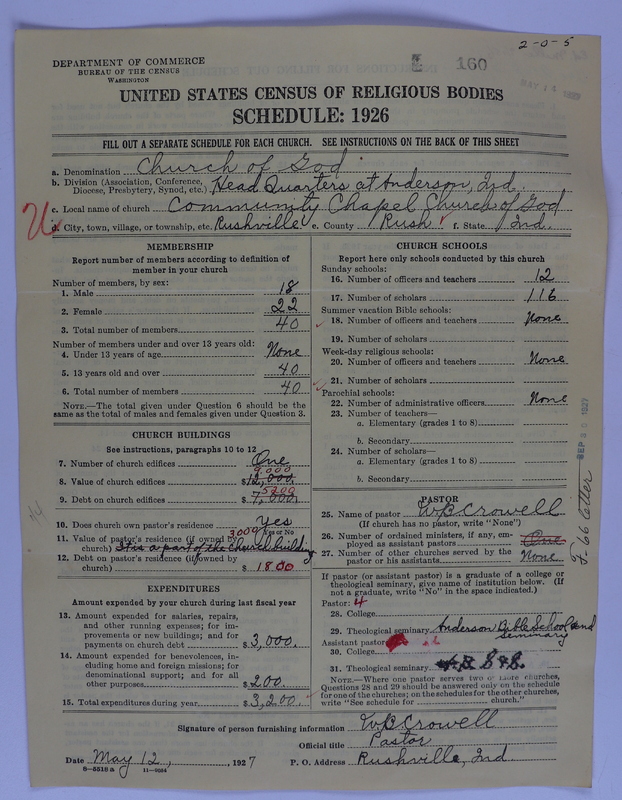 2-0-5
DEPARTMENT OF COMMERCE
BUREAU OF THE CENSUS
WASHINGTON
160
UNITED STATES CENSUS OF RELIGIOUS BODIES
SCHEDULE: 1926
FILL OUT A SEPARATE SCHEDULE FOR EACH CHURCH. SEE INSTRUCTIONS ON THE BACK OF THIS SHEET
a. Denomination Church of God
b. Division (Association, Conference, Diocese, Presbytery, Synod, etc.) Head Quarters at Anderson, Ind.
c. Local name of church Community Chapel Church of God
d. City, town, village, or township, etc. Rushville e. County Rush f. State Ind.
MEMBERSHIP
Report number of members according to definition of
member in your church
Number of members, by sex:
1. Male 18
2. Female 22
3. Total number of members 40
Number of members under and over 13 years old:
4. Under 13 years of age None
5. 13 years old and over 40
6. Total number of members 40
NOTE.—The total given under Question 6 should be the
same as the total of males and females given under Question 3.
CHURCH BUILDINGS
See instructions, paragraphs 10 to 12
7. Number of church edifices One
9.000
8. Value of church edifices $12,000.
5200
9. Debt on church edifices $7,000.
10. Does church own pastor's residence Yes
Yes or No
11. Value of pastor's residence (if owned by 3000
church) It is a part of the church building
12. Debt on pastor's residence (if owned by
church) $1800
EXPENDITURES
Amount expended by your church during last fiscal year
13. Amount expended for salaries, repairs,
and other running expenses; for im-
provements or new buildings; and for
payments on church debt $3,000.
14. Amount expended for benevolences, in-
cluding home and foreign missions; for
denominational support; and for all
other purposes $200.
15. Total expenditures during year $3,200.
CHURCH SCHOOLS
Report here only schools conducted by this church
Sunday schools:
16. Number of officers and teachers 12
17. Number of scholars 116
Summer vacation Bible schools:
18. Number of officers and teachers None
19. Number of scholars
Week-day religious schools:
20. Number of officers and teachers None
21. Number of scholars
Parochial schools:
22. Number of administrative officers None
23. Number of teachers—
a. Elementary (grades 1 to 8)
b. Secondary
24. Number of scholars—
a. Elementary (grades 1 to 8)
b. Secondary
PASTOR
25. Name of pastor W B Crowell
(If church has no pastor, write "None")
26. Number of ordained ministers, if any, em-
ployed as assistant pastors One
27. Number of other churches served by the
pastor or his assistants None
If pastor (or assistant pastor) is a graduate of a college or
theological seminary, give name of institution below. (If
not a graduate, write "No" in the space indicated.)
Pastor:
28. College
29. Theological seminary Anderson Bible School and
Seminary
Assistant pastor:
30. College
31. Theological seminary
NOTE.—Where one pastor serves two or more churches,
Questions 28 and 29 should be answered only on the schedule
for one of the churches; on the schedules for the other churches,
write "See schedule for church."
Signature of person furnishing information W B Crowell
Official title Pastor
Date May 12, 1927 P. O. Address Rushville, Ind.
8—5518 a 11—9054